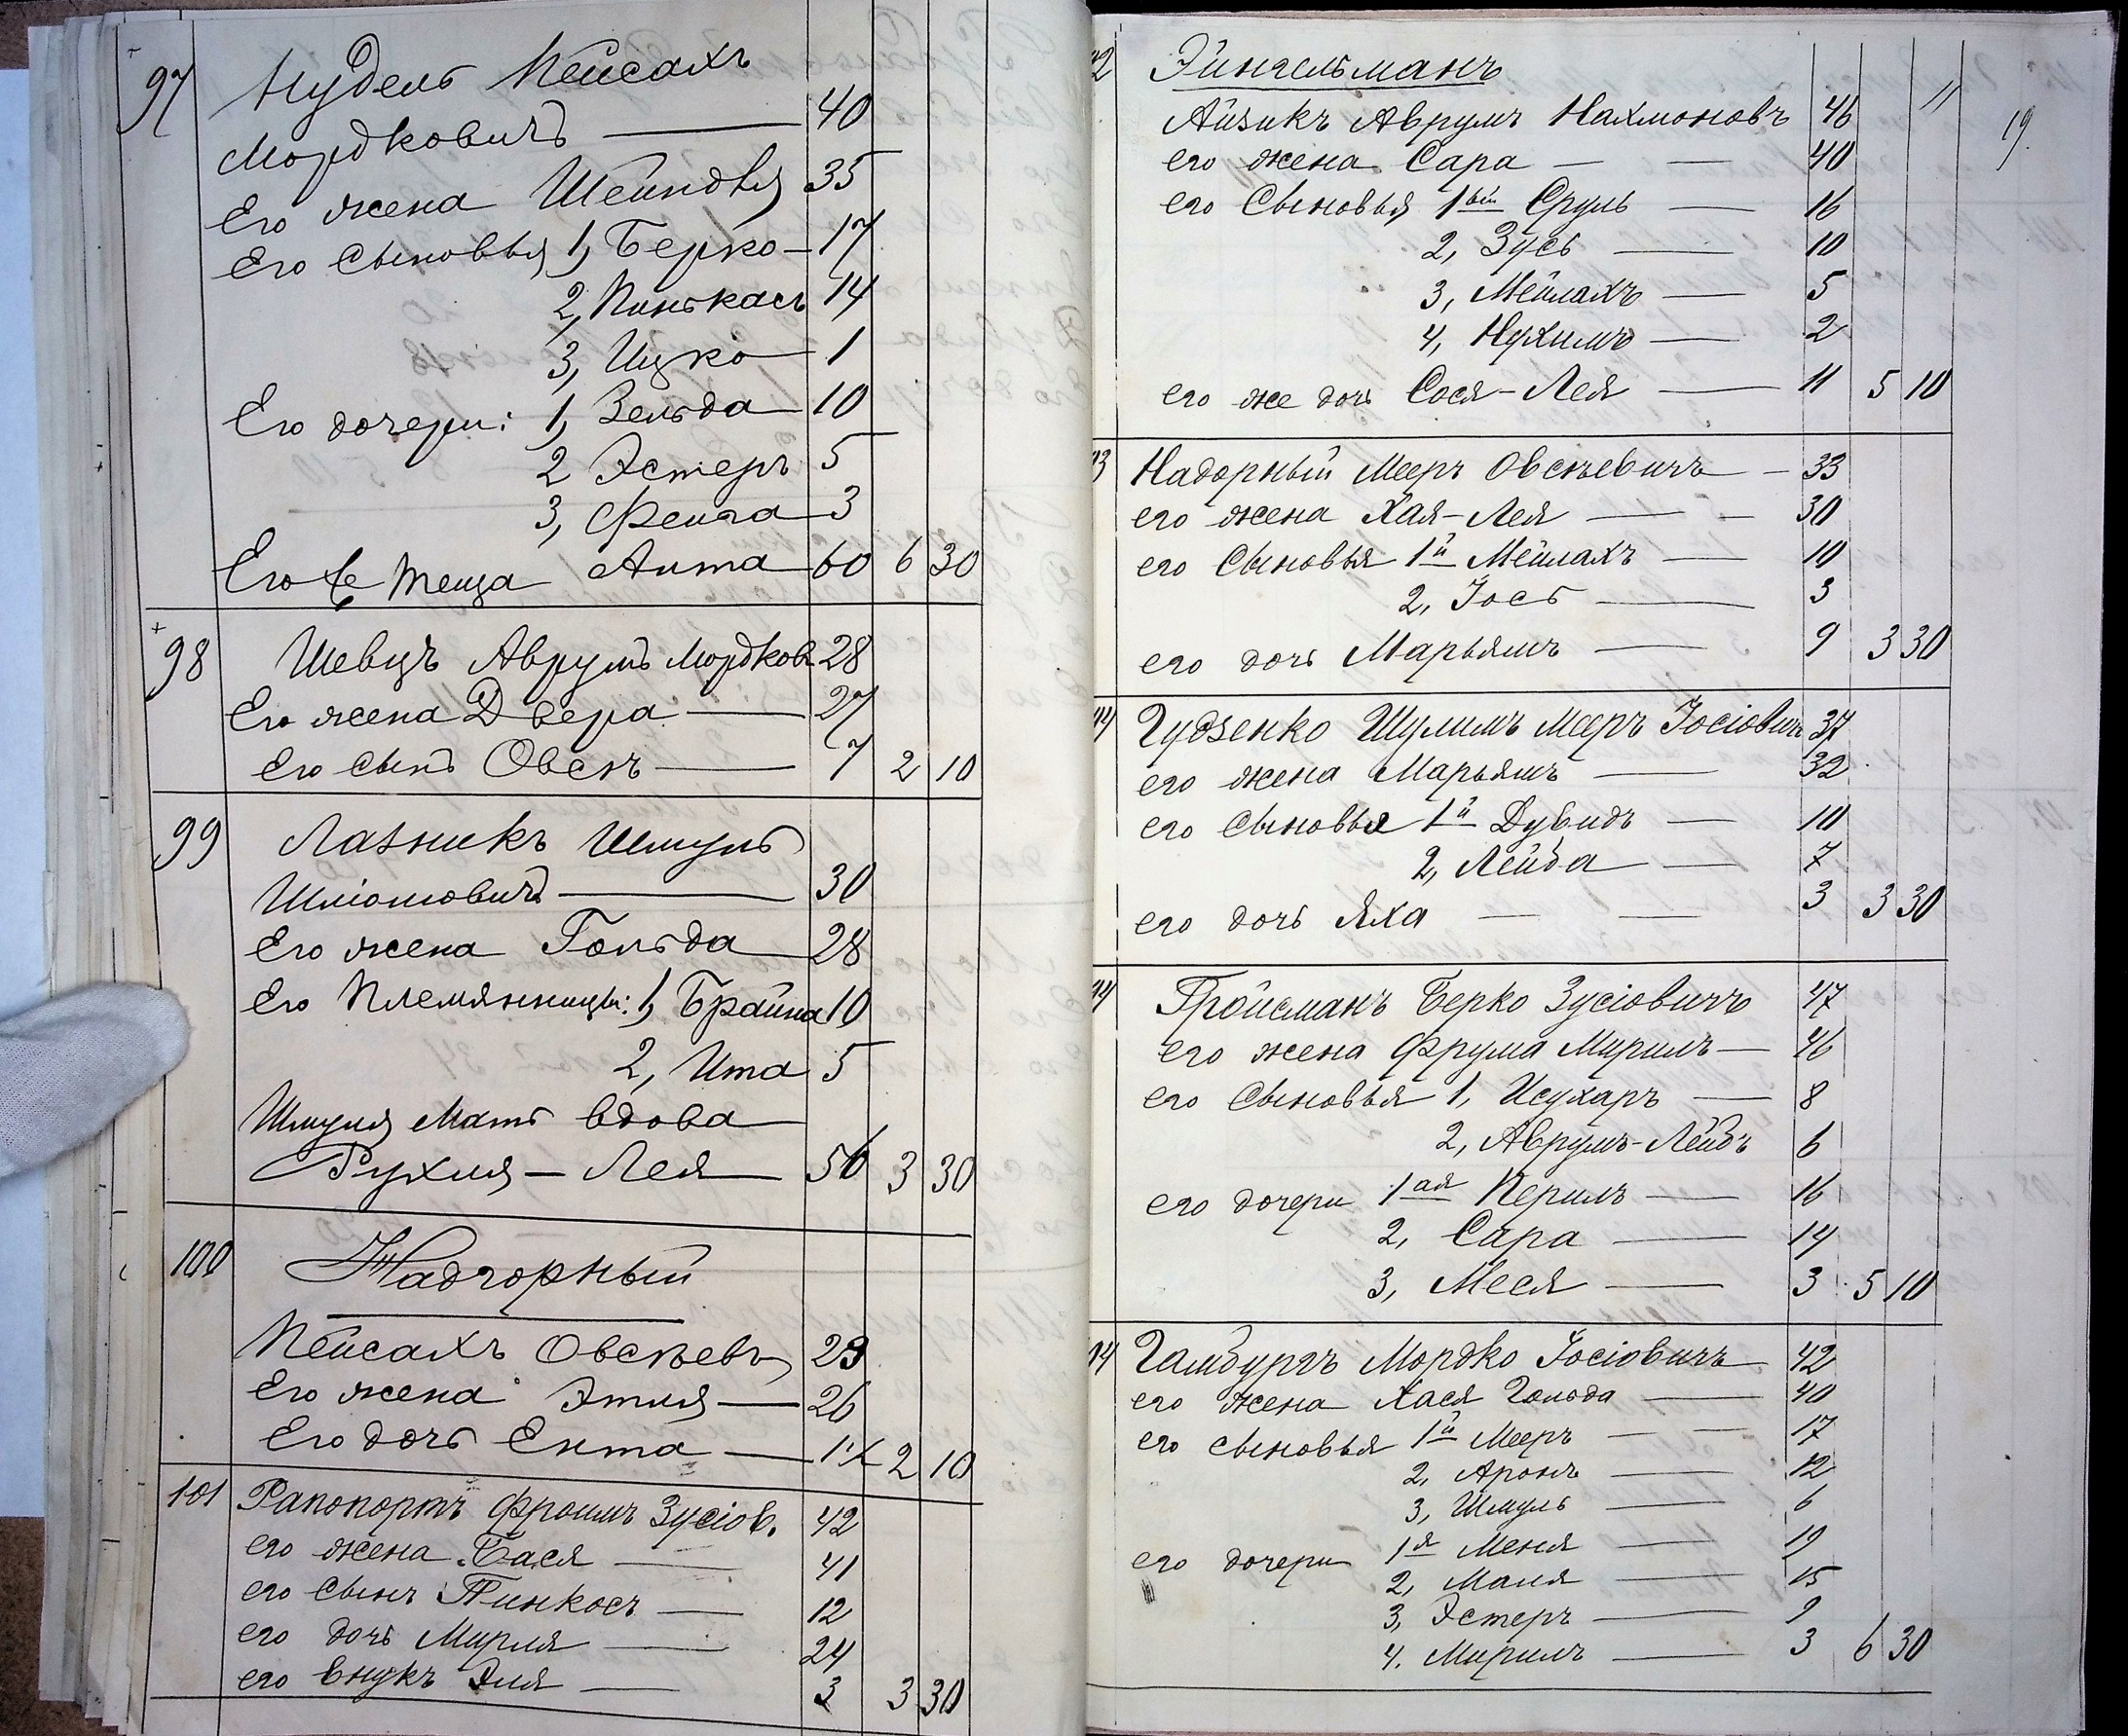 97 Нудель Пейсахъ
Мордковичъ — 40
Его жена Шейндля 35
Его Сыновья 1, Берко — 17
2, Пинькасъ 14
3, Ицко — 1
Его дочери: 1, Зельда — 10
2 Эстеръ 5
3, Фейга — 3
Его же теща Анта — 60 6 30
98 Шевцъ Аврумъ Мордков 28
Его жена Двера — 27
Его сынъ Овсей — 7 2 10
99 Лазникъ Шмуль
Шліомовичъ — 30
Его жена Гольда — 28
Его Племянницы: 1, Брайна 10
2, Ита 5
Шмуля Мать вдова —
Рухля — Лея — 56 3 30
100 Надгорный
Пейсахъ Овсѣевъ 29
Его жена Этля — 26
Его дочь Ента — 1½ 2 10
101 Рапопортъ Фроимъ Зусіов. 42
его жена Бася — 41
его сынъ Пинкосъ — 12
его дочь Мирля — 24
его внукъ Эля — 3 3 30
11
19.
2 Эйнгельманъ
Айзикъ Аврумъ Нахмоновъ 46
его жена Сара — — 40
его Сыновья 1ый Сруль — 16
2, Зусь — 10
3, Мейлахъ — 5
4, Нухимъ — 2
его же дочь Сося-Лея — 11 5 10
3 Надорный Мееръ Овсѣевичъ — 33
его жена Хая-Лея — — 30
его Сыновья 1й Мейлахъ — 10
2, Іось — 3
его дочь Марьямъ — 9 3 30
4 Гудзенко Шулимъ Мееръ Іосіовичъ 37
его жена Марьямъ — 32
его Сыновья 1й Дувидъ — 10
2, Лейба — 7
его дочь Яха — — 3 3 30
4 Гройсманъ Берко Зусіовичъ 47
его жена Фрума Миримъ — 46
его Сыновья 1, Исухаръ — 8
2, Аврумъ-Лейбъ 6
его дочери 1ая Перилъ — 16
2, Сара — 14
3, Меся — 3 5 10
4 Гамбургъ Мордко Іосіовичъ 42
его жена Хася Гольда — 40
его сыновья 1й Мееръ — — 17
2, Аронъ — 12
3, Шмуль — 6
его дочери 1я Меня — 19
2, Маля — 15
3, Эстеръ — 9
4. Миримъ — 3 6 30